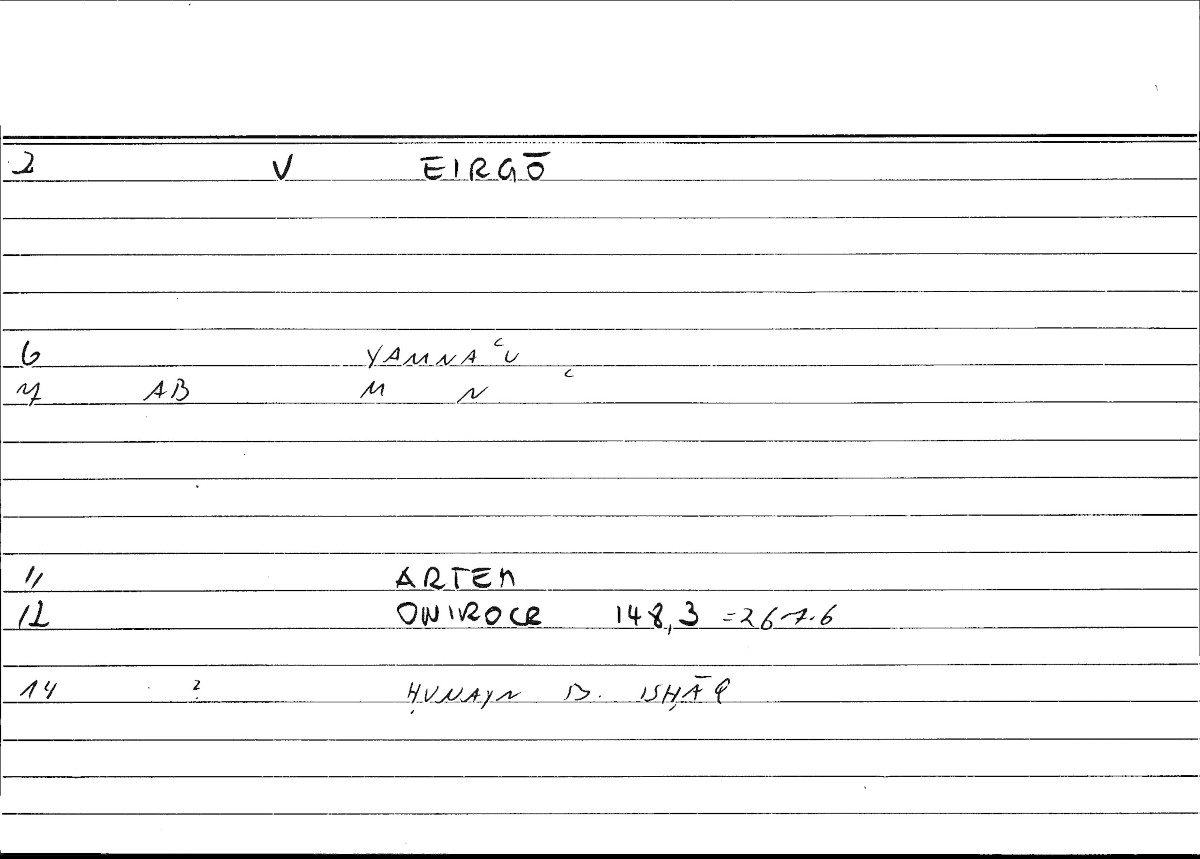 2 V EIRGŌ
6 YAMNAʿU
7 AB M N ʿ
11 ARTEM
12 ONIROCR 148,3 =267.6
14 ? ḤUNAYN B. ISḤĀQ